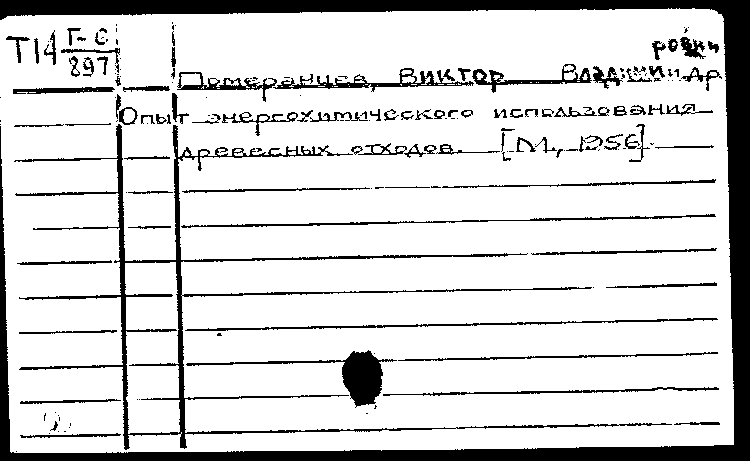 Т14 Г-6
897
Померанцев, Виктор Владими
др
Опыт энергохимического использования
древесных отходов. [М., 1956].